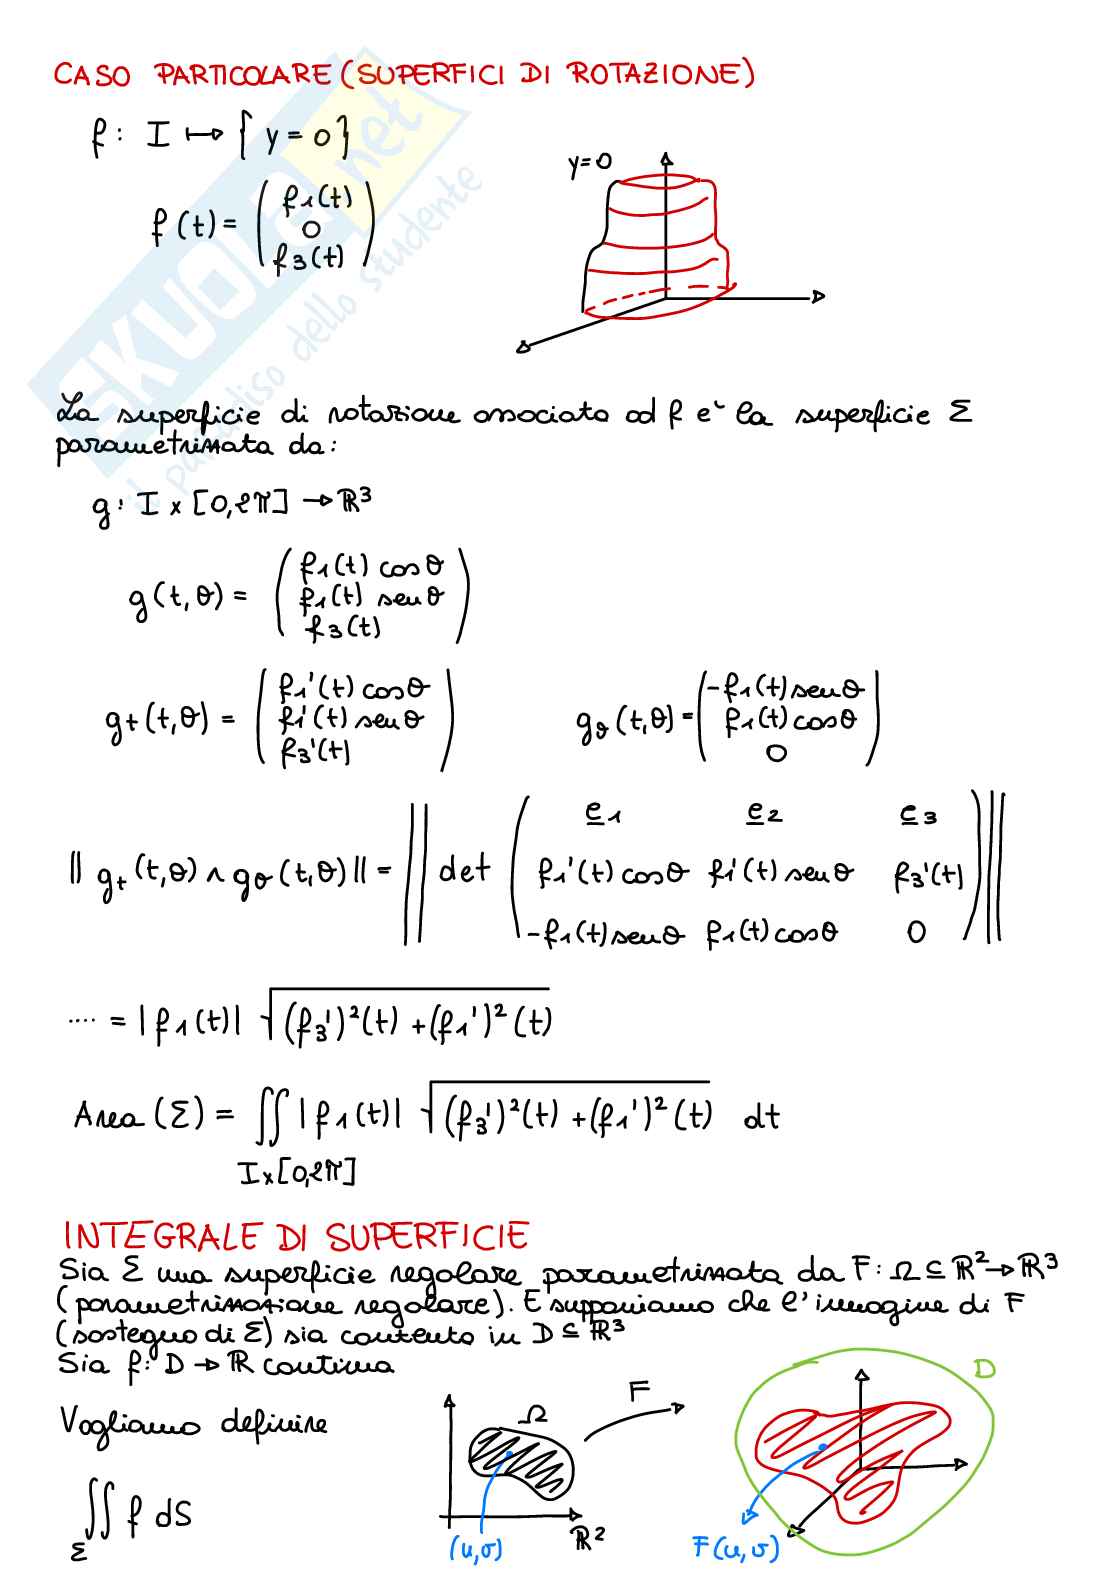 CASO PARTICOLARE (SUPERFICI DI ROTAZIONE)
f: I ↦ { y = 0 }
f(t) = ( f1(t)
0
f3(t) )
y=0
SKUOLA.net
il paradiso dello studente
La superficie di rotazione associata ad f e' la superficie Σ
parametrizzata da:
g: I x [0,2π] → ℝ³
g(t,θ) = ( f1(t) cosθ
f1(t) senθ
f3(t) )
gt(t,θ) = ( f1'(t) cosθ
f1'(t) senθ
f3'(t) )
gθ(t,θ) = ( -f1(t) senθ
f1(t) cosθ
0 )
|| gt(t,θ) ∧ gθ(t,θ) || = || det ( e1 e2 e3
f1'(t) cosθ f1'(t) senθ f3'(t)
-f1(t) senθ f1(t) cosθ 0 ) ||
.... = |f1(t)| √((f3')²(t) + (f1')²(t))
Area (Σ) = ∬ |f1(t)| √((f3')²(t) + (f1')²(t)) dt
I x [0,2π]
INTEGRALE DI SUPERFICIE
Sia Σ una superficie regolare parametrizzata da F: Ω ⊆ ℝ² → ℝ³
(parametrizzazione regolare). E supponiamo che l'immagine di F
(sostegno di Σ) sia contenuto in D ⊆ ℝ³
Sia f: D → ℝ continua
Vogliamo definire
∬ f dS
Σ
Ω
F
D
(u,v)
ℝ²
F(u,v)